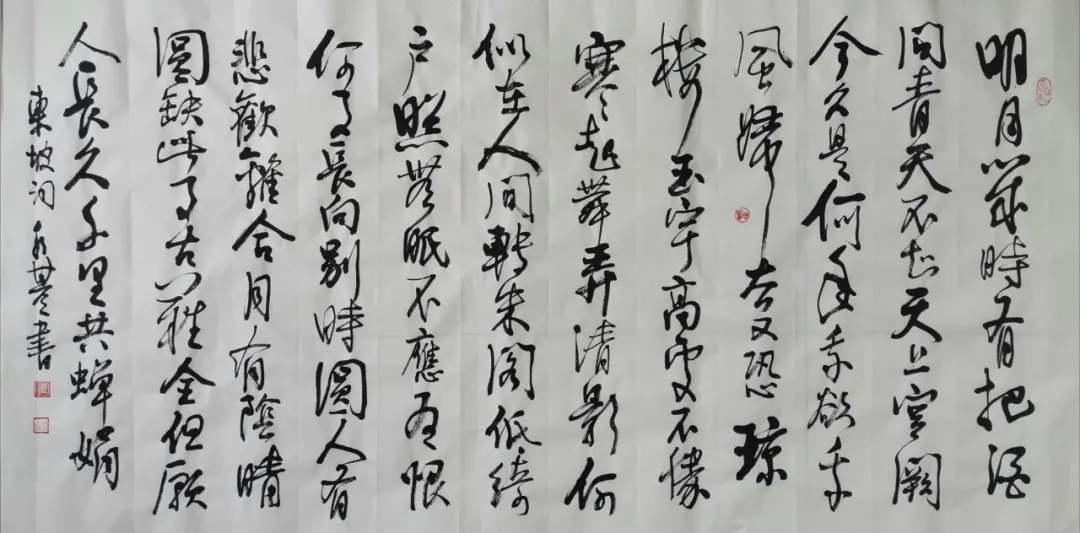 明月幾時有把酒
問青天不知天上宮闕
今夕是何年我欲乘
風歸去又恐琼
樓玉宇高處不勝
寒起舞弄清影何
似在人間轉朱閣低綺
户照無眠不應有恨
何事長向別時圓人有
悲歡離合月有陰晴
圓缺此事古難全但願
人長久千里共蝉娟
東坡詞 書